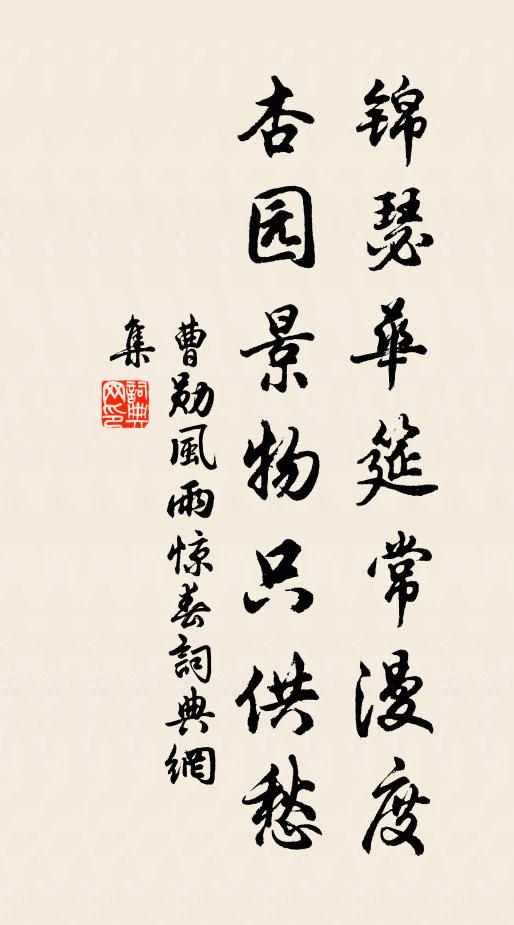 锦瑟华筵常漫度
杏园景物只供愁
曹勋風雨惊春詞典網
集
詞典
网印